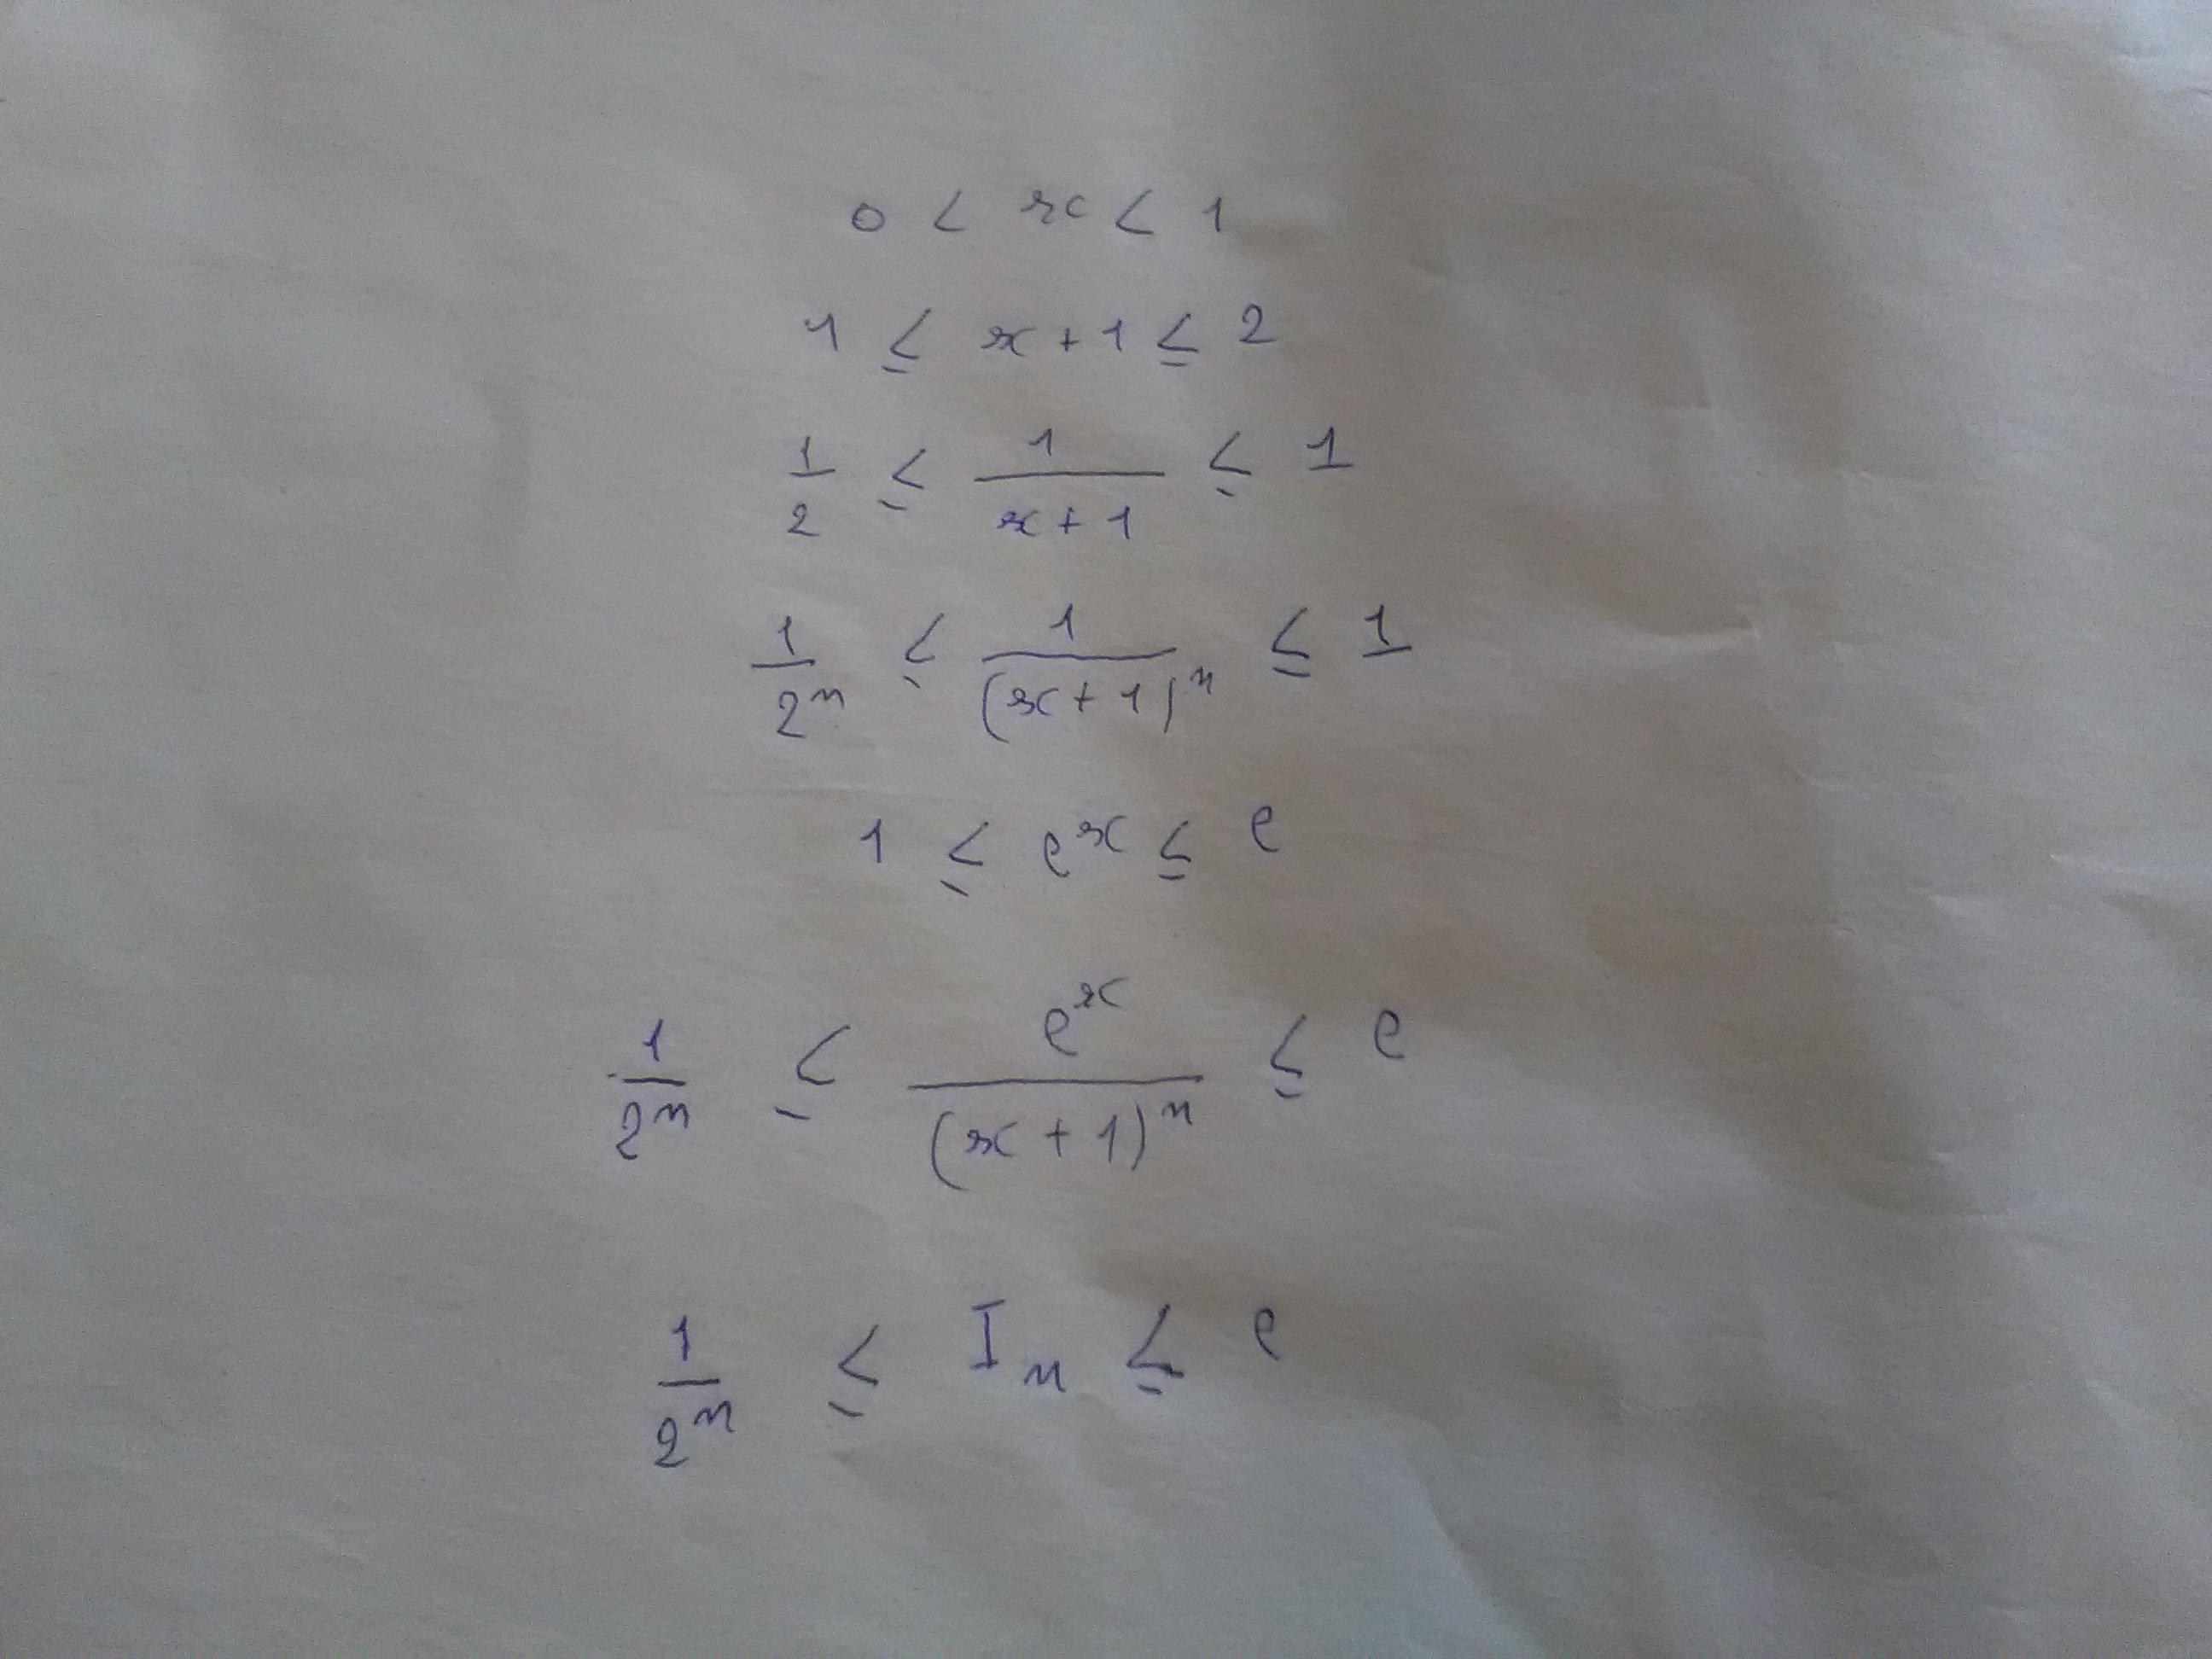 0 < x < 1
1 ≤ x + 1 ≤ 2
1/2 ≤ 1/(x + 1) ≤ 1
1/2^n ≤ 1/(x + 1)^n ≤ 1
1 ≤ e^x ≤ e
1/2^n ≤ e^x/(x + 1)^n ≤ e
1/2^n ≤ I_n ≤ e